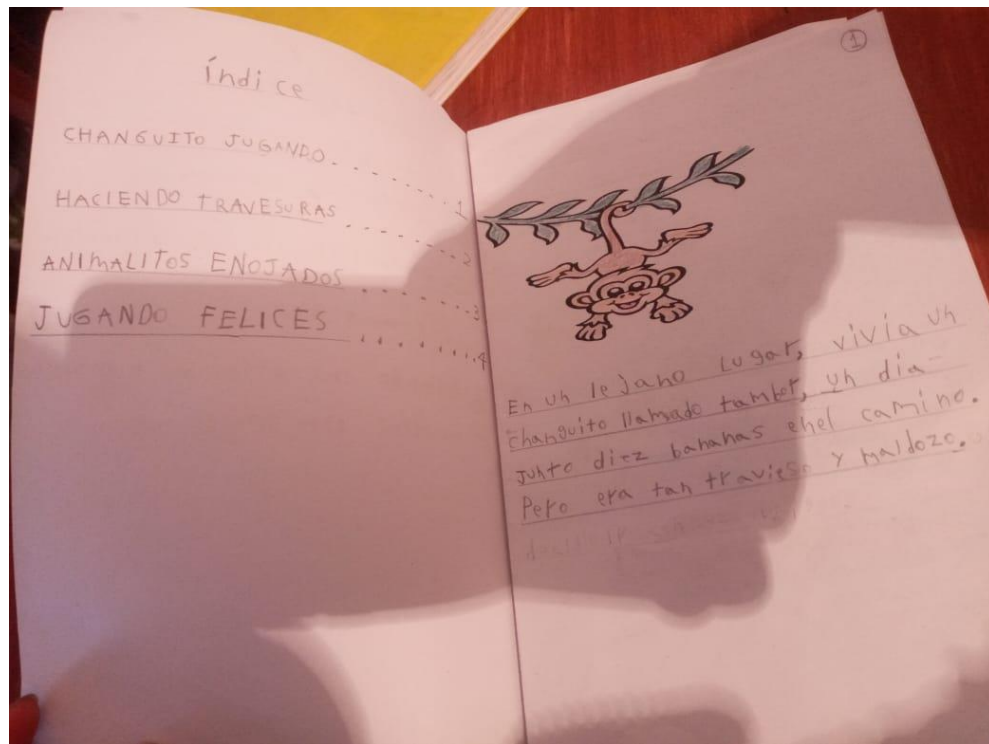 índice
CHANGUITO JUGANDO. . . . . . . . . . . 1
HACIENDO TRAVESURAS . . . . . . . . . 2
ANIMALITOS ENOJADOS . . . . . . . . . 3
JUGANDO FELICES . . . . . . . . . 4
1
En un lejano lugar, vivía un
changuito llamado tambor, un día
junto diez bananas enel camino.
Pero era tan travieso y maldozo.